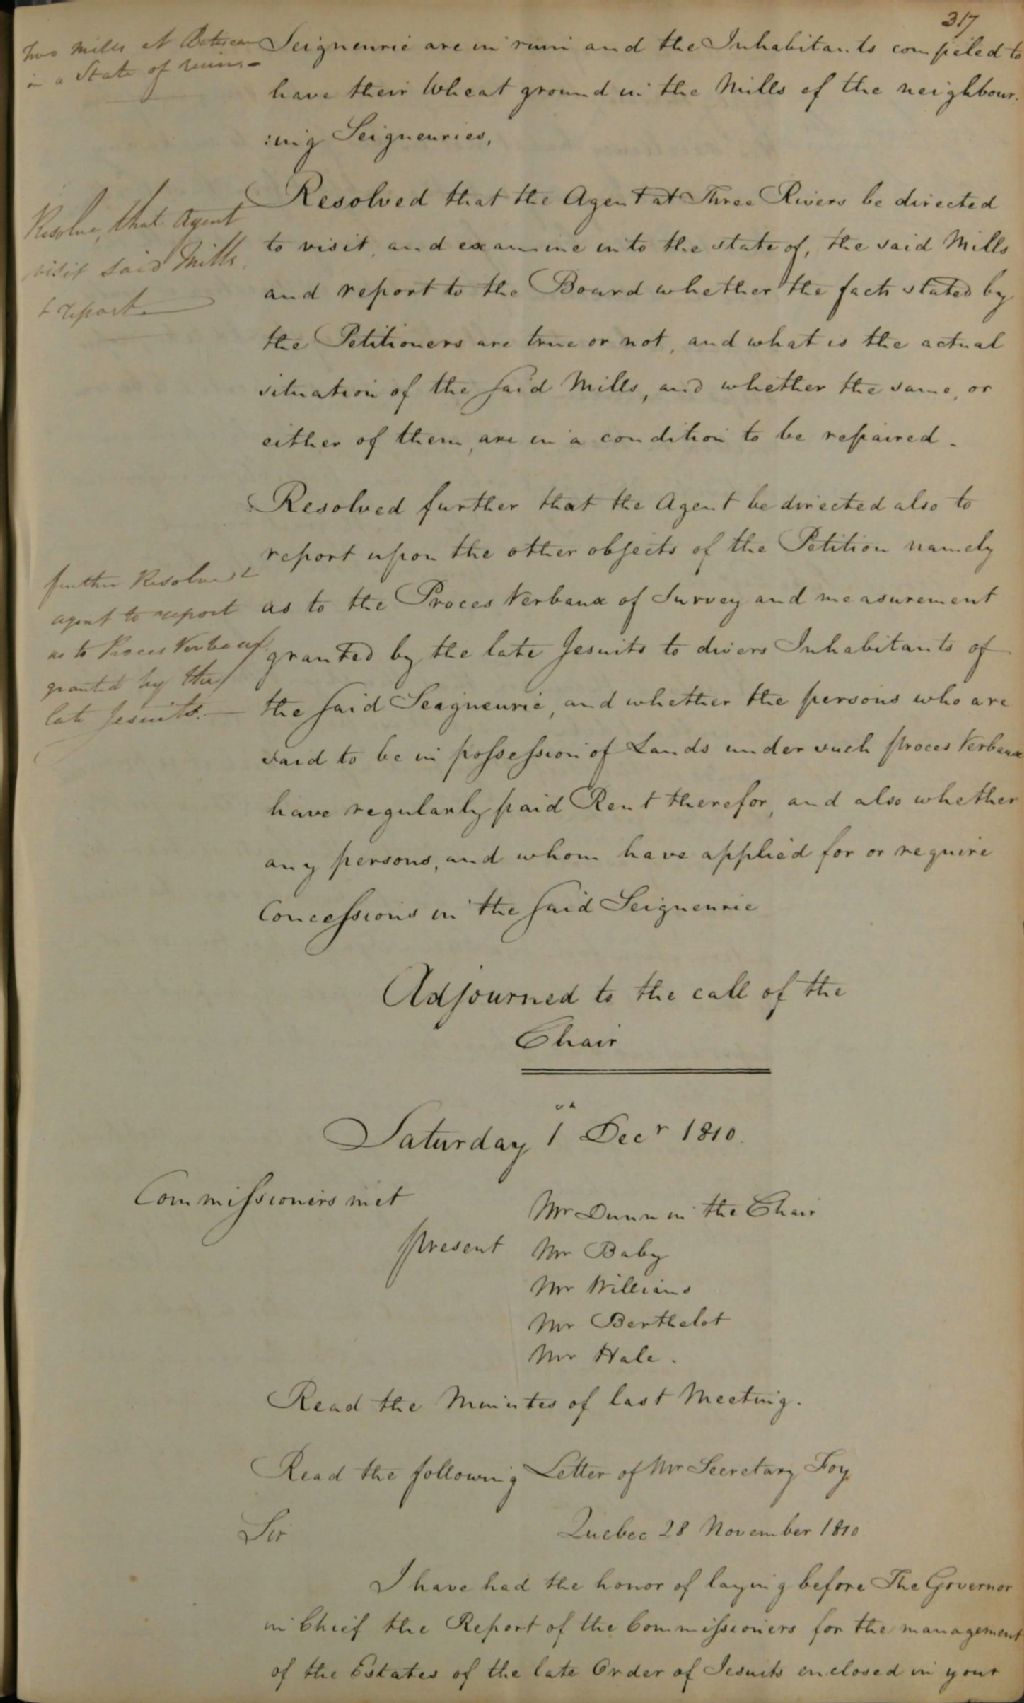 317
Two Mills at Batiscan
in a State of ruins.
Seigneurie are in ruin and the Inhabitants compeled to
have their Wheat ground in the Mills of the neighbour.
:ing Seigneuries.
Resolve, that Agent
visit said Mills,
& report.
Resolved that the Agent at Three Rivers be directed
to visit, and examine into the state of, the said Mills
and report to the Board whether the facts stated by
the Petitioners are true or not, and what is the actual
situation of the said Mills, and whether the same, or
either of them, are in a condition to be repaired.
further Resolved
agent to report
as to Proces Verbaux
granted by the
late Jesuits.
Resolved further that the Agent be directed also to
report upon the other objects of the Petition namely
as to the Proces Verbaux of Survey and measurement
granted by the late Jesuits to divers Inhabitants of
the said Seigneurie, and whether the persons who are
said to be in possession of Lands under such proces Verbaux
have regularly paid Rent therefor, and also whether
any persons, and whom have applied for or require
Concessions in the said Seigneurie
Adjourned to the call of the
Chair
Saturday 1 Decr 1810.
Commissioners met
present
Mr Dunn in the Chair
Mr Baby
Mr Williams
Mr Berthelot
Mr Hale.
Read the Minutes of last Meeting.
Read the following Letter of Mr Secretary Foy
Sir
Quebec 28 November 1810
I have had the honor of laying before The Governor
in Chief the Report of the Commissioners for the management
of the Estates of the late Order of Jesuits enclosed in your